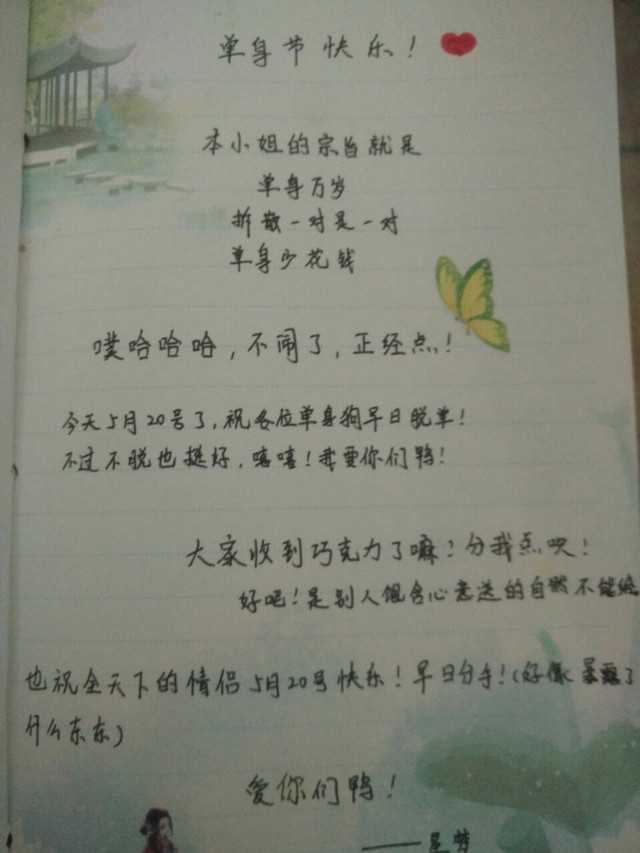 单身节快乐!
本小姐的宗旨就是
单身万岁
拆散一对是一对
单身少花钱
噗哈哈哈,不闹了,正经点!
今天5月20号了,祝各位单身狗早日脱单!
不过不脱也挺好,嘻嘻!我爱你们鸭!
大家收到巧克力了嘛?分我点呗!
好吧!是别人饱含心意送的自然不能给
也祝全天下的情侣5月20号快乐!早日分手!(好像暴露了
什么东东)
爱你们鸭!